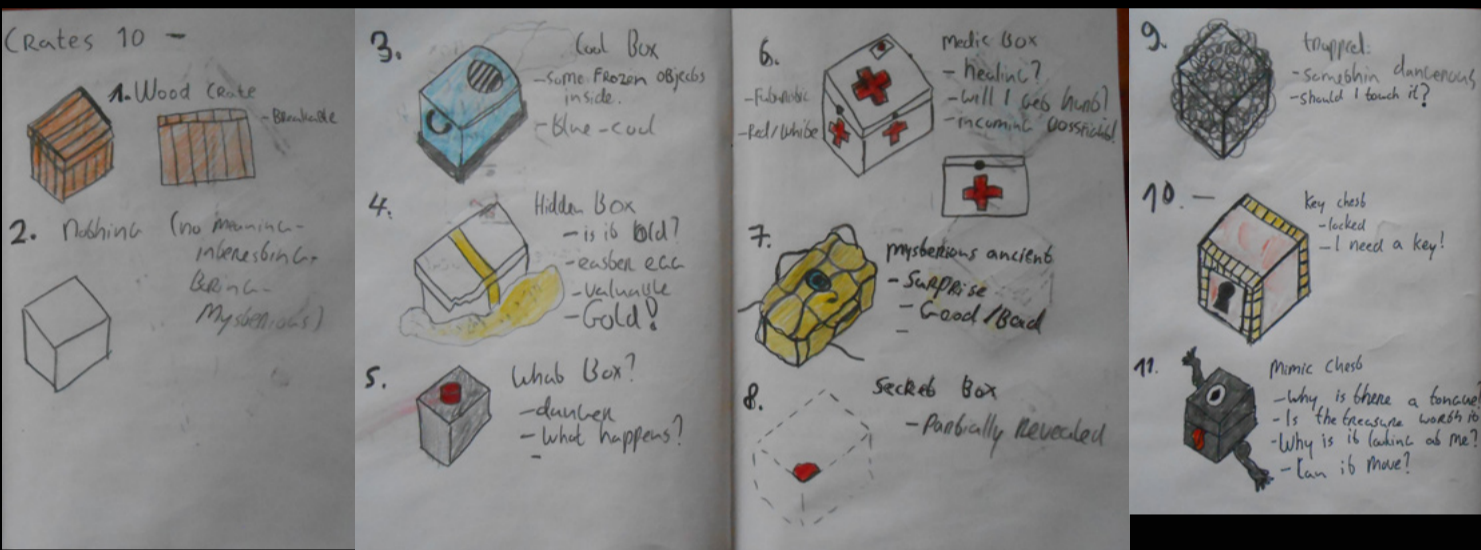 Crates 10 -
1. Wood Crate
- Breakable
2. Nothing (no meaning -
interesting -
Boring -
Mysterious)
3. Cool Box
- Some Frozen Objects
inside.
- Blue - cool
4. Hidden Box
- is it Gold?
- easter egg
- valuable
- Gold!
5. What Box?
- danger
- What happens?
-
6. Medic Box
- Futuristic
- Red/White
- healing?
- will I get hurt?
- incoming
7. Mysterious ancient
- Surprise
- Good/Bad
-
8. Secret Box
- Partially Revealed
9. trapped:
- somethin dangerous
- should I touch it?
10. - Key chest
- locked
- I need a key!
11. Mimic Chest
- Why is there a tongue
- Is the treasure worth it
- Why is it looking at me?
- Can it move?